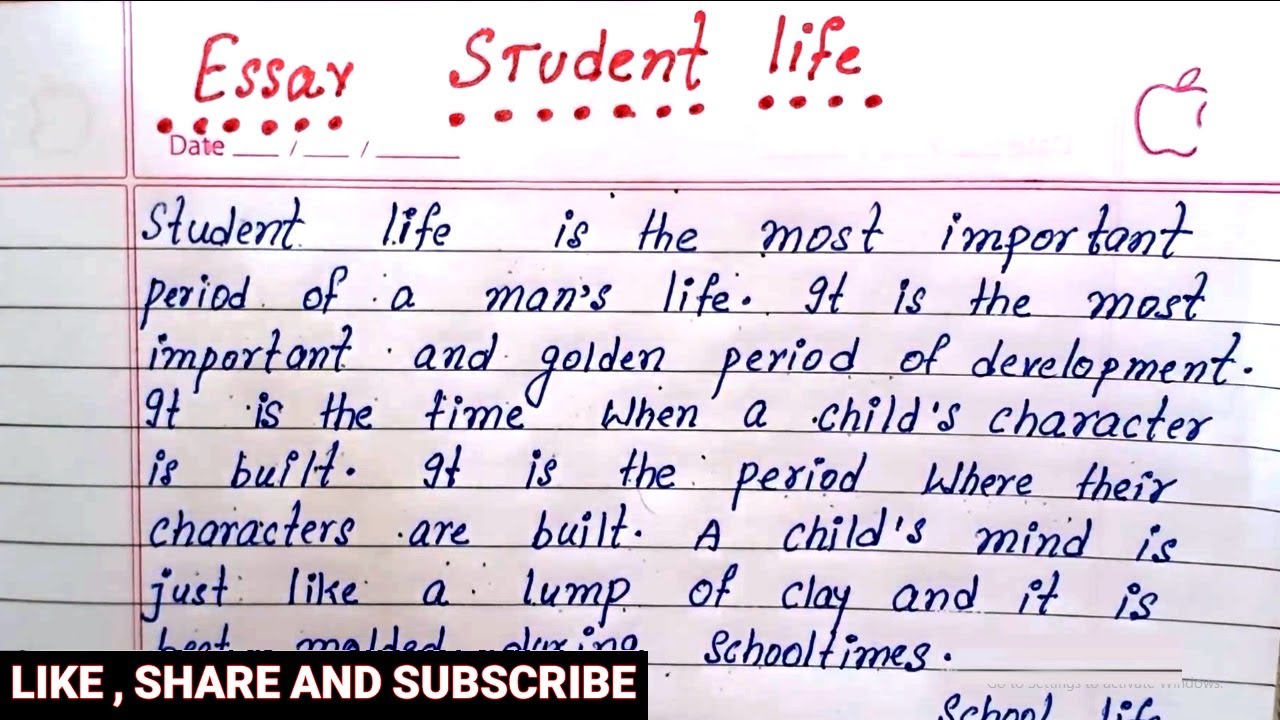 Essay Student life
Date __ / __ / ____
Student life is the most important
period of a man's life. It is the most
important and golden period of development.
It is the time when a child's character
is built. It is the period where their
characters are built. A child's mind is
just like a lump of clay and it is
best molded during schooltimes.
LIKE , SHARE AND SUBSCRIBE
Go to Settings to activate Windows.
School life